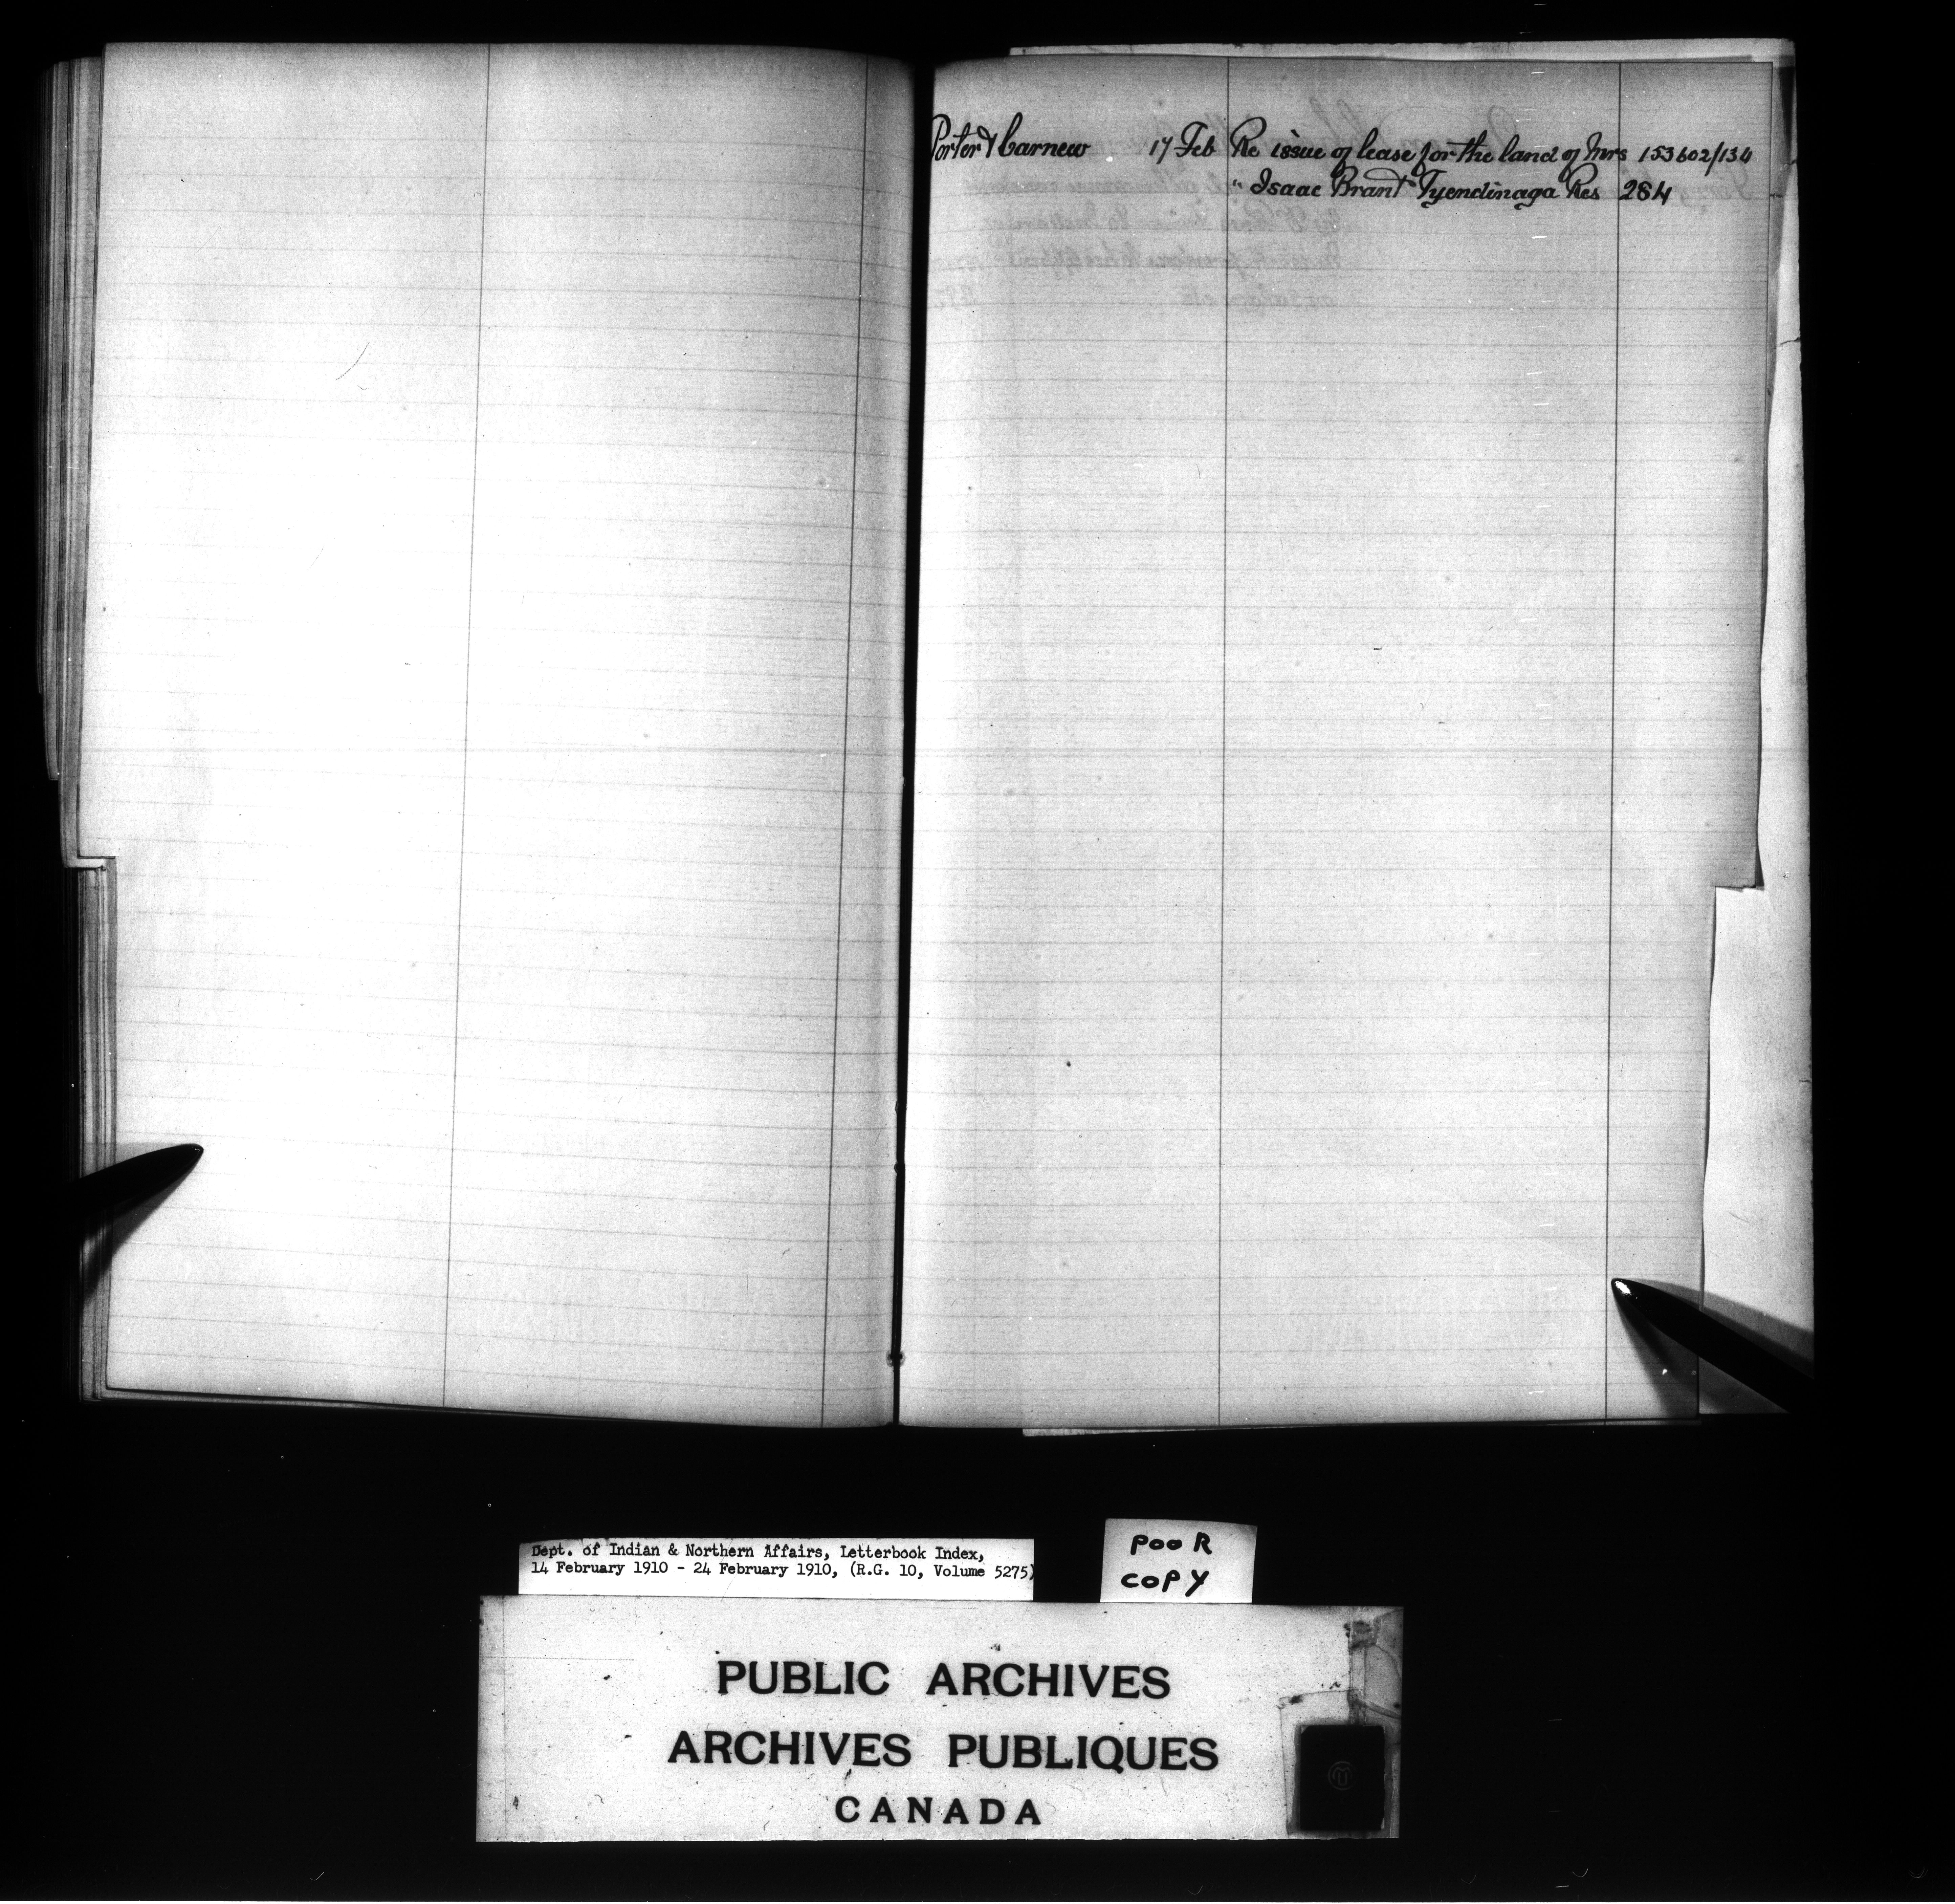 Porter & Carnew 17 Feb Re issue of lease for the land of Mrs 153602/134
" Isaac Brant Tyendinaga Res 284
Dept. of Indian & Northern Affairs, Letterbook Index,
14 February 1910 - 24 February 1910, (R.G. 10, Volume 5275)
POOR
COPY
PUBLIC ARCHIVES
ARCHIVES PUBLIQUES
CANADA